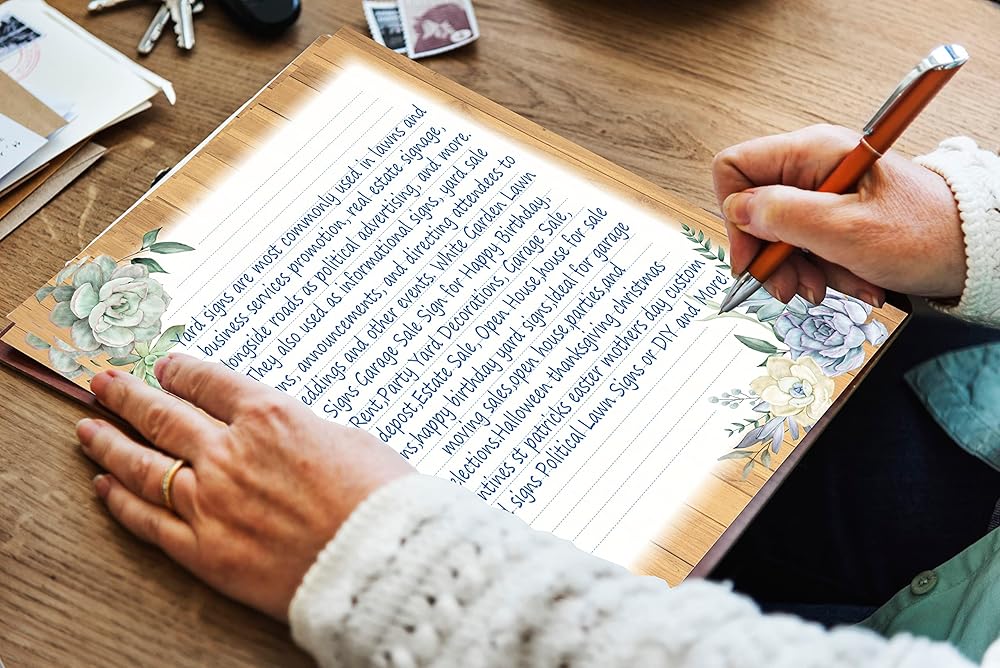 Yard signs are most commonly used in lawns and
business services promotion, real estate signage,
alongside roads as political advertising, and more.
They also used as informational signs, yard sale
announcements, and directing attendees to
weddings and other events. White Garden Lawn
Signs Garage Sale Sign for Happy Birthday,
Rent,Party Yard Decorations, Garage Sale,
depot,Estate Sale, Open House,house for sale
happy birthday yard signs,Ideal for garage
moving sales,open house,parties,and
elections.Halloween thanksgiving christmas
st patricks easter mothers day custom
signs Political Lawn Signs or DIY and More!